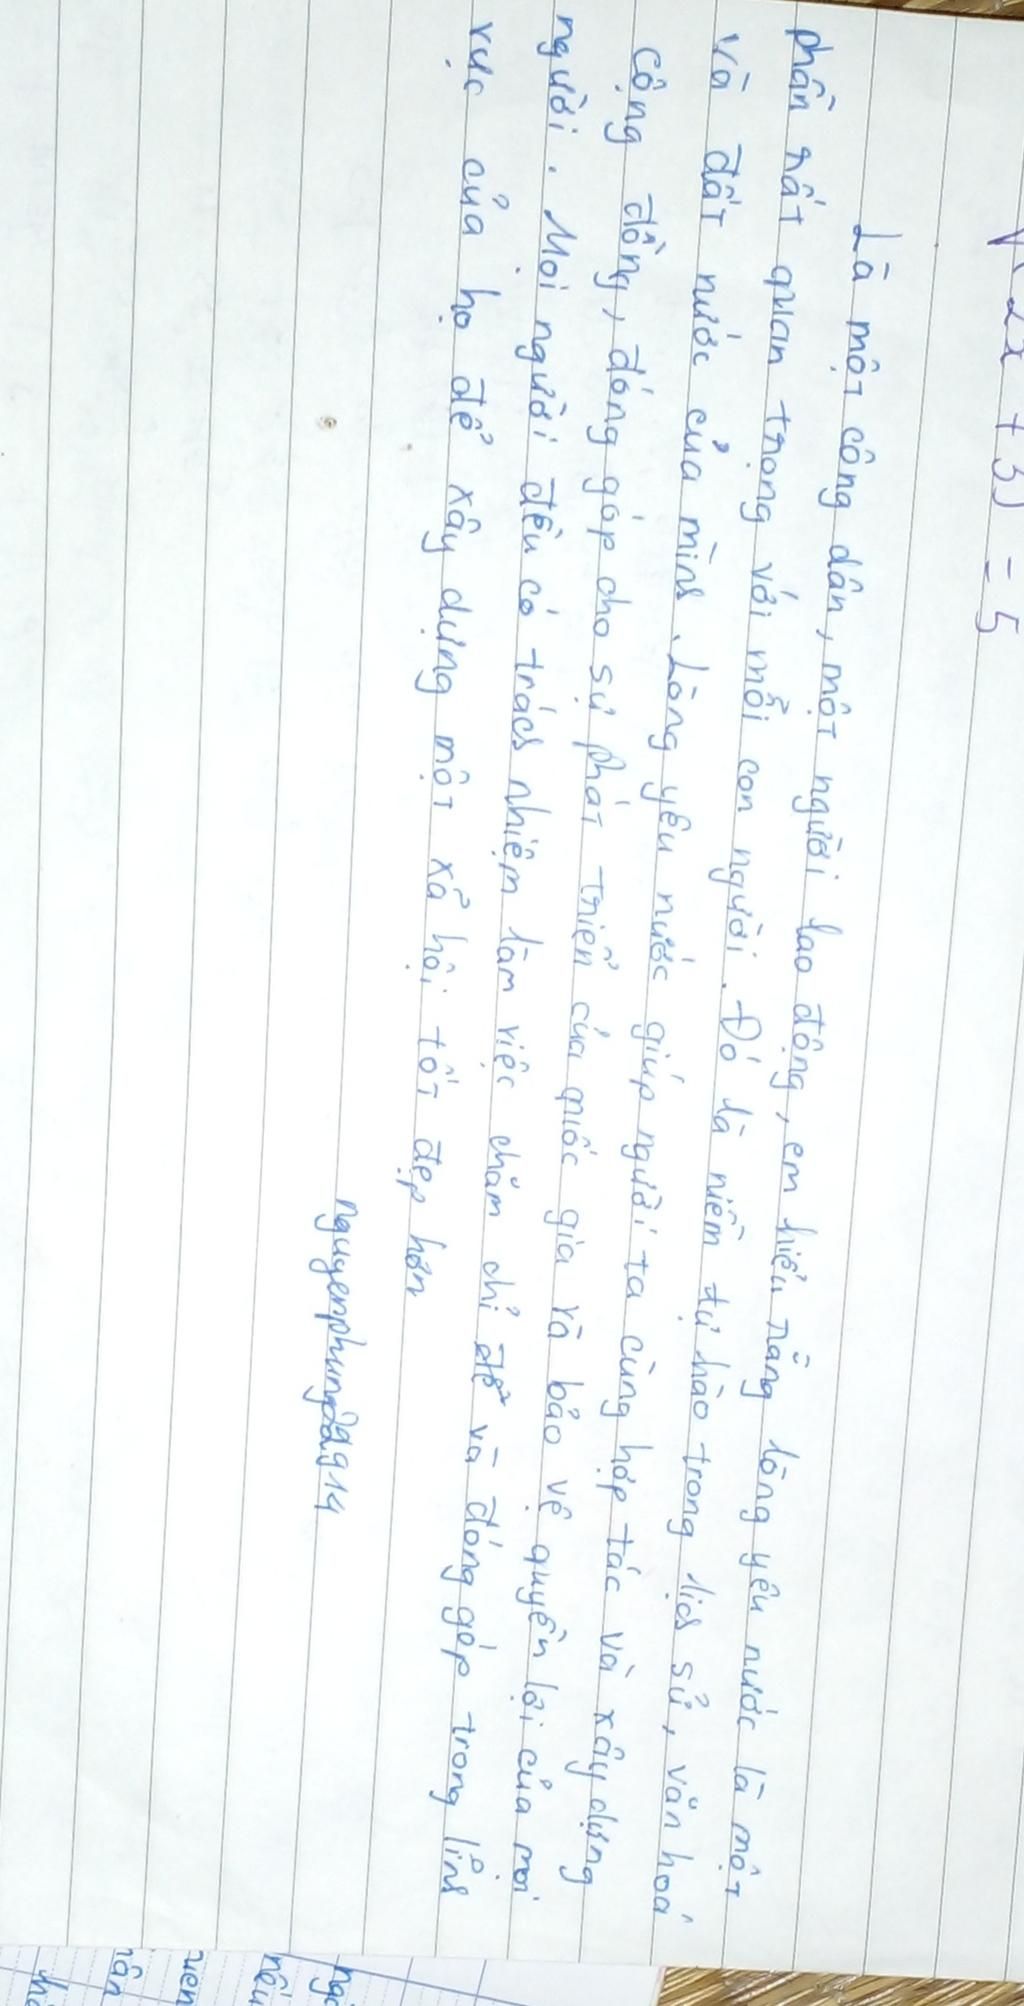 (2x + 3) = 5
Là một công dân, một người lao động, em hiểu rằng lòng yêu nước là một
phần rất quan trọng với mỗi con người. Đó là niềm tự hào trong lịch sử, văn hoá
và đất nước của mình. Lòng yêu nước giúp người ta cùng hợp tác và xây dựng
cộng đồng, đóng góp cho sự phát triển của quốc gia và bảo vệ quyền lợi của mọi
người. Mọi người đều có trách nhiệm làm việc chăm chỉ để và đóng góp trong lĩnh
vực của họ để xây dựng một xã hội tốt đẹp hơn